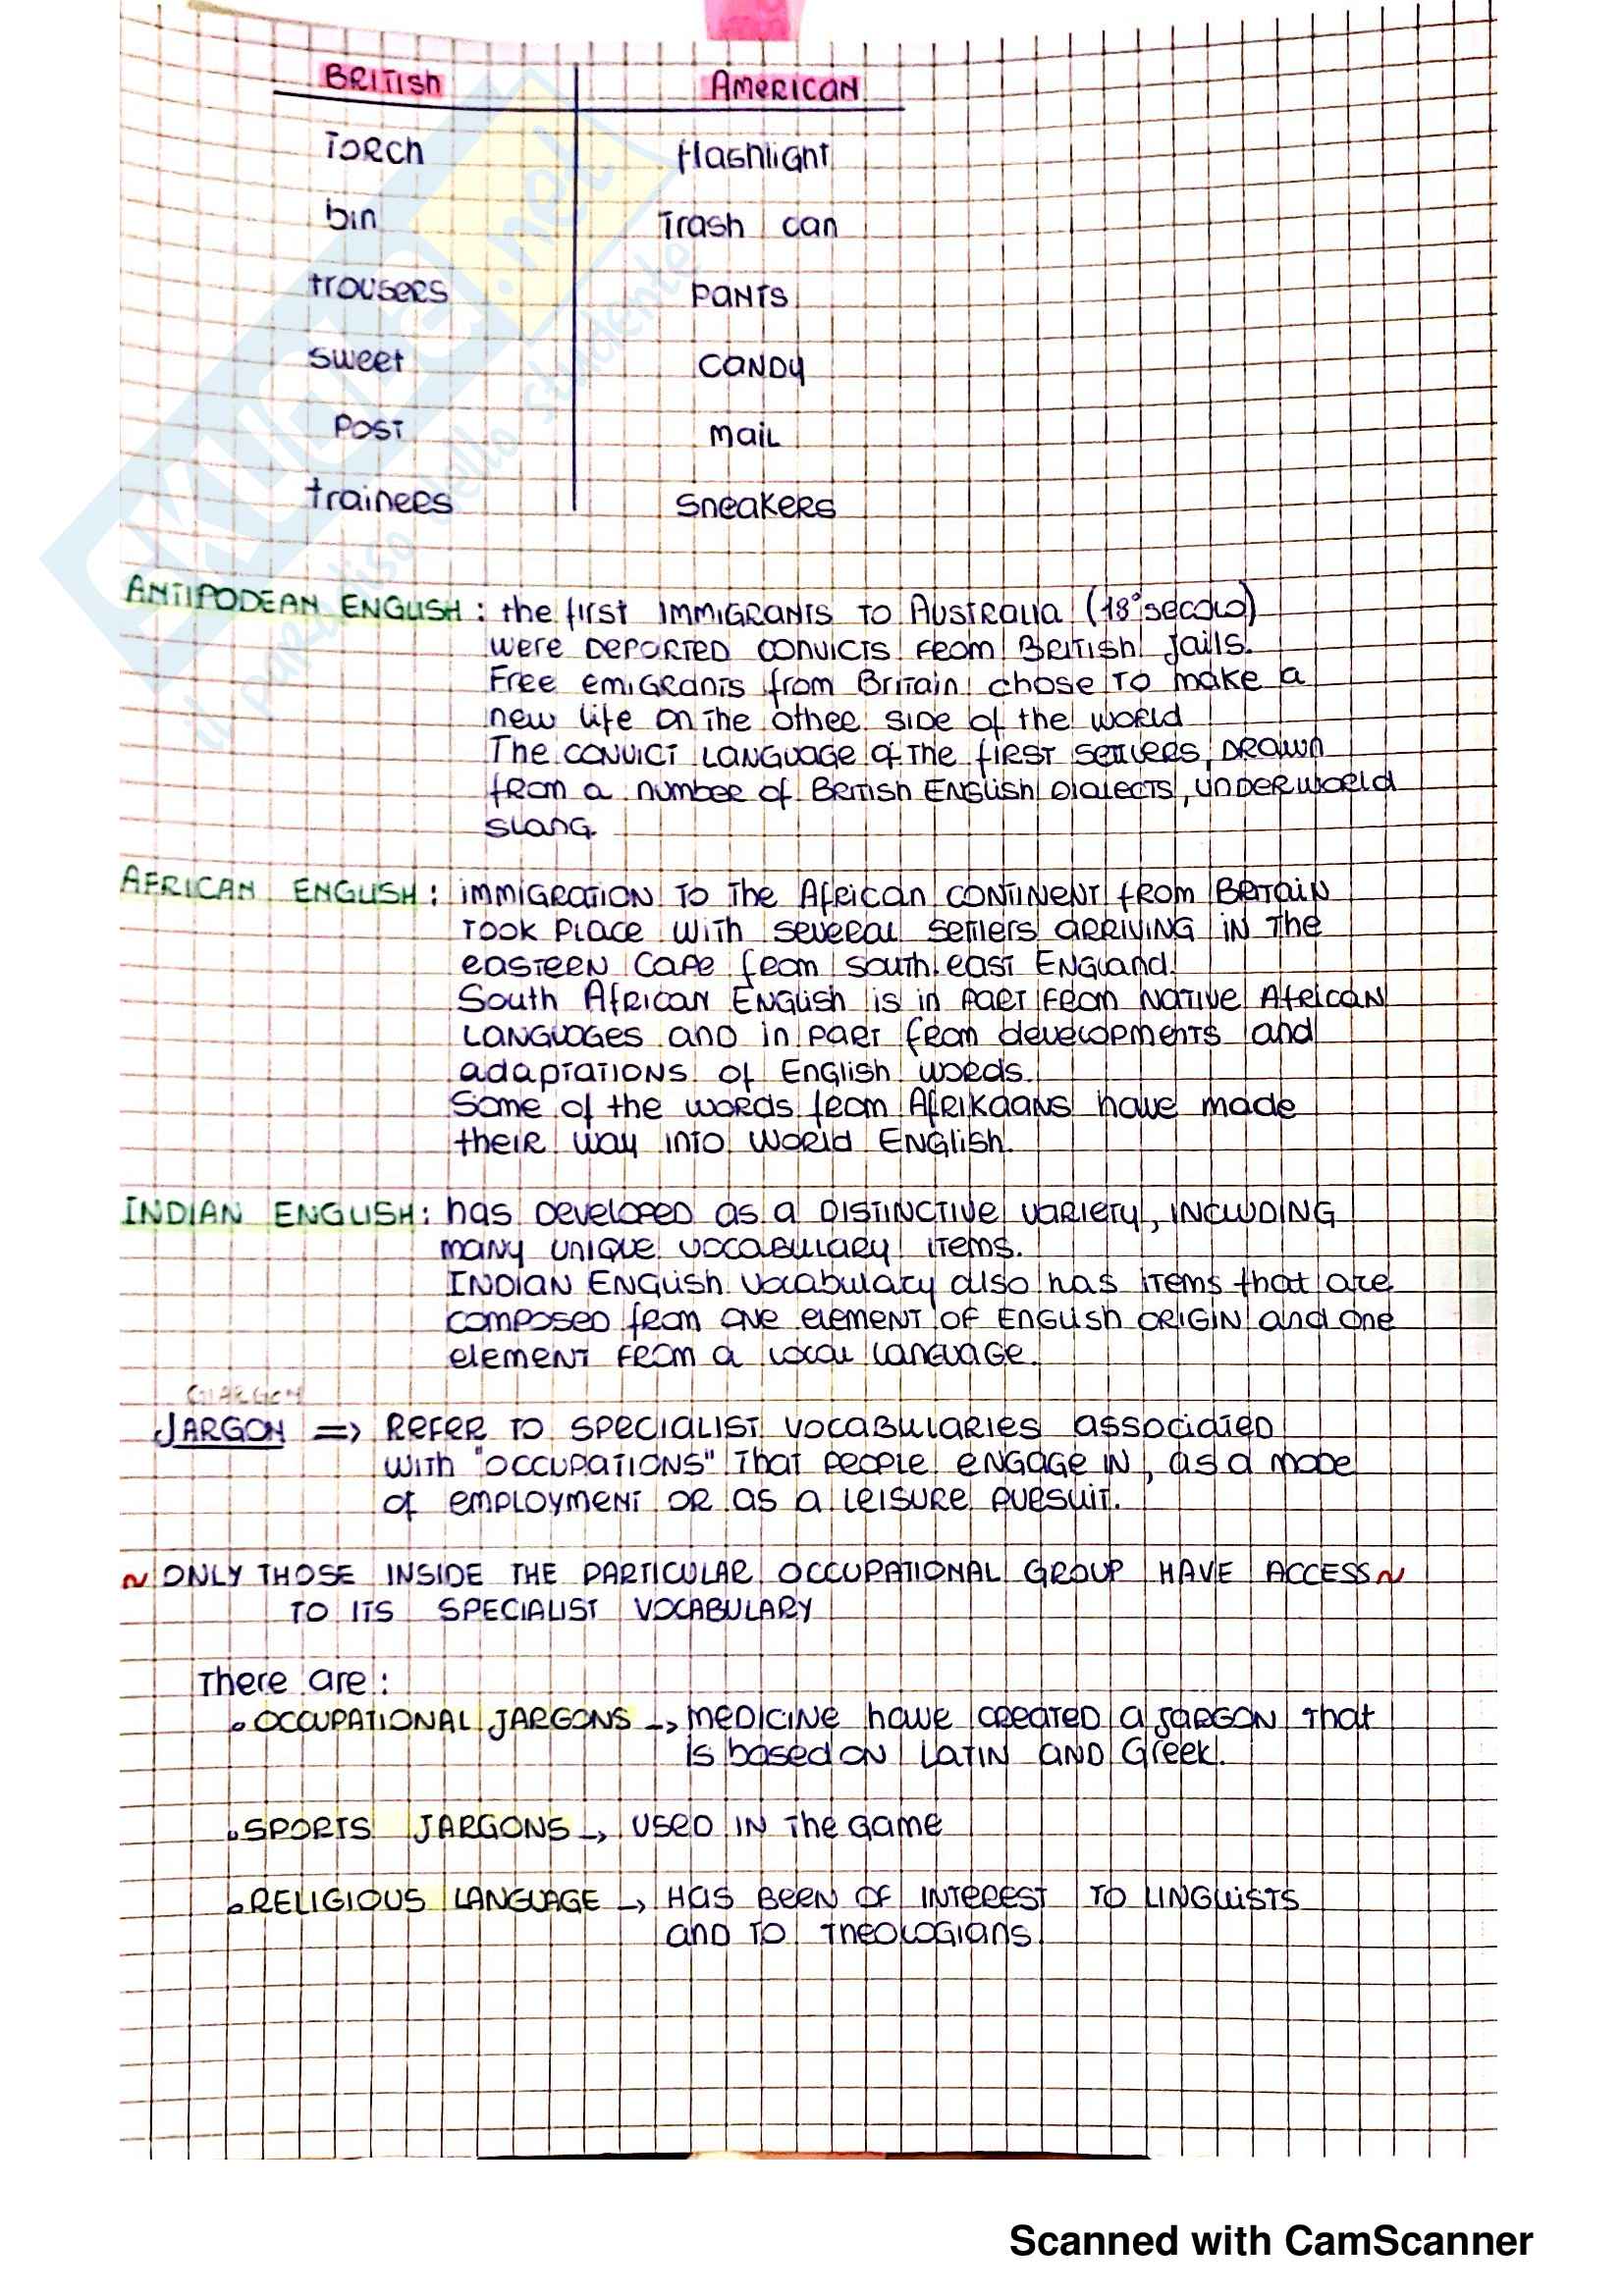 BRITISH AMERICAN
Torch flashlight
bin Trash can
trousers PANTS
sweet CANDY
POST MAIL
trainers sneakers
ANTIPODEAN ENGLISH: the first IMMIGRANTS TO AUSTRALIA (18° secolo)
were DEPORTED CONVICTS FROM BRITISH Jails.
Free emigrants from Britain chose TO make a
new life on the other side of the world
The CONVICT LANGUAGE of the FIRST SETTLERS, DRAWN
from a number of British ENGLISH Dialects, UNDERWORLD
SLANG.
AFRICAN ENGLISH: IMMIGRATION TO The African CONTINENT from BRITAIN
TOOK PLACE WITH several settlers ARRIVING IN The
EASTERN CAPE from south east ENGLAND.
South AFRICAN ENGLISH is in PART FROM NATIVE AFRICAN
LANGUAGES and in PART from developments and
adaptations of English words.
Some of the words from AFRIKAANS have made
their way into WORLD ENGLISH.
INDIAN ENGLISH: has DEVELOPED as a DISTINCTIVE VARIETY, INCLUDING
many UNIQUE VOCABULARY items.
INDIAN ENGLISH vocabulary also has items that are
composed from ONE element OF ENGLISH ORIGIN and one
element FROM a LOCAL LANGUAGE.
GIARGON
JARGON => REFER TO SPECIALIST VOCABULARIES associated
WITH "OCCUPATIONS" That people ENGAGE IN, as a mode
of EMPLOYMENT OR as a LEISURE PURSUIT.
~ ONLY THOSE INSIDE THE PARTICULAR OCCUPATIONAL GROUP HAVE ACCESS ~
TO ITS SPECIALIST VOCABULARY
There are:
• OCCUPATIONAL JARGONS -> MEDICINE have CREATED a JARGON That
is based on LATIN AND Greek.
• SPORTS JARGONS -> USED IN The Game
• RELIGIOUS LANGUAGE -> HAS BEEN OF INTEREST TO LINGUISTS
and TO THEOLOGIANS
skuola.net
il paradiso dello studente
Scanned with CamScanner